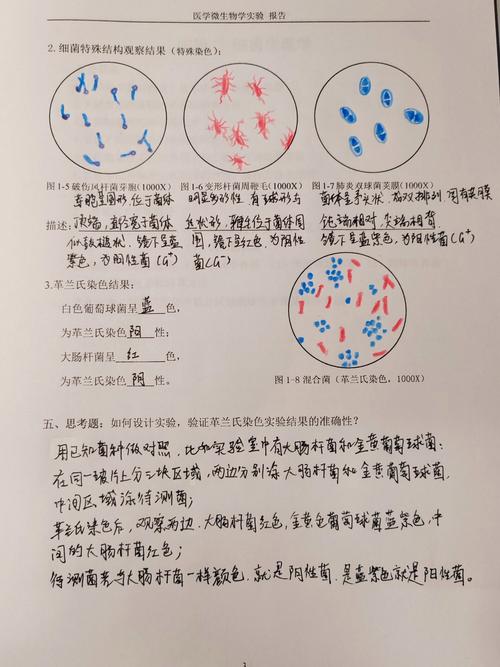 医学微生物学实验 报告
2.细菌特殊结构观察结果（特殊染色）:
图 1-5 破伤风杆菌芽胞(1000X) 图 1-6 变形杆菌周鞭毛(1000X) 图 1-7 肺炎双球菌荚膜(1000X)
描述:
芽胞呈圆形,位于菌体
顶端,直径宽于菌体
似鼓槌状,镜下呈蓝
紫色,为阳性菌(G+)
明显多形性,有球形与
丝状形,鞭毛位于菌体周
围,镜下呈红色,为阴性
菌(G-)
钝端相对,尖端相背
镜下呈蓝紫色,为阳性菌(G+)
3.革兰氏染色结果:
白色葡萄球菌呈 蓝 色,
为革兰氏染色 阳 性;
大肠杆菌呈 红 色,
为革兰氏染色 阴 性。
图 1-8 混合菌（革兰氏染色，1000X）
五、思考题: 如何设计实验，验证革兰氏染色实验结果的准确性?
用已知菌种做对照,比如实验室中有大肠杆菌和金黄葡萄球菌:
在同一玻片上分三块区域,两边分别涂大肠杆菌和金黄葡萄球菌,
中间区域涂待测菌;
革兰氏染色后,观察两边,大肠杆菌红色,金黄色葡萄球菌蓝紫色,中
间的大肠杆菌红色;
待测菌若与大肠杆菌一样颜色,就是阴性菌,是蓝紫色就是阳性菌。
3